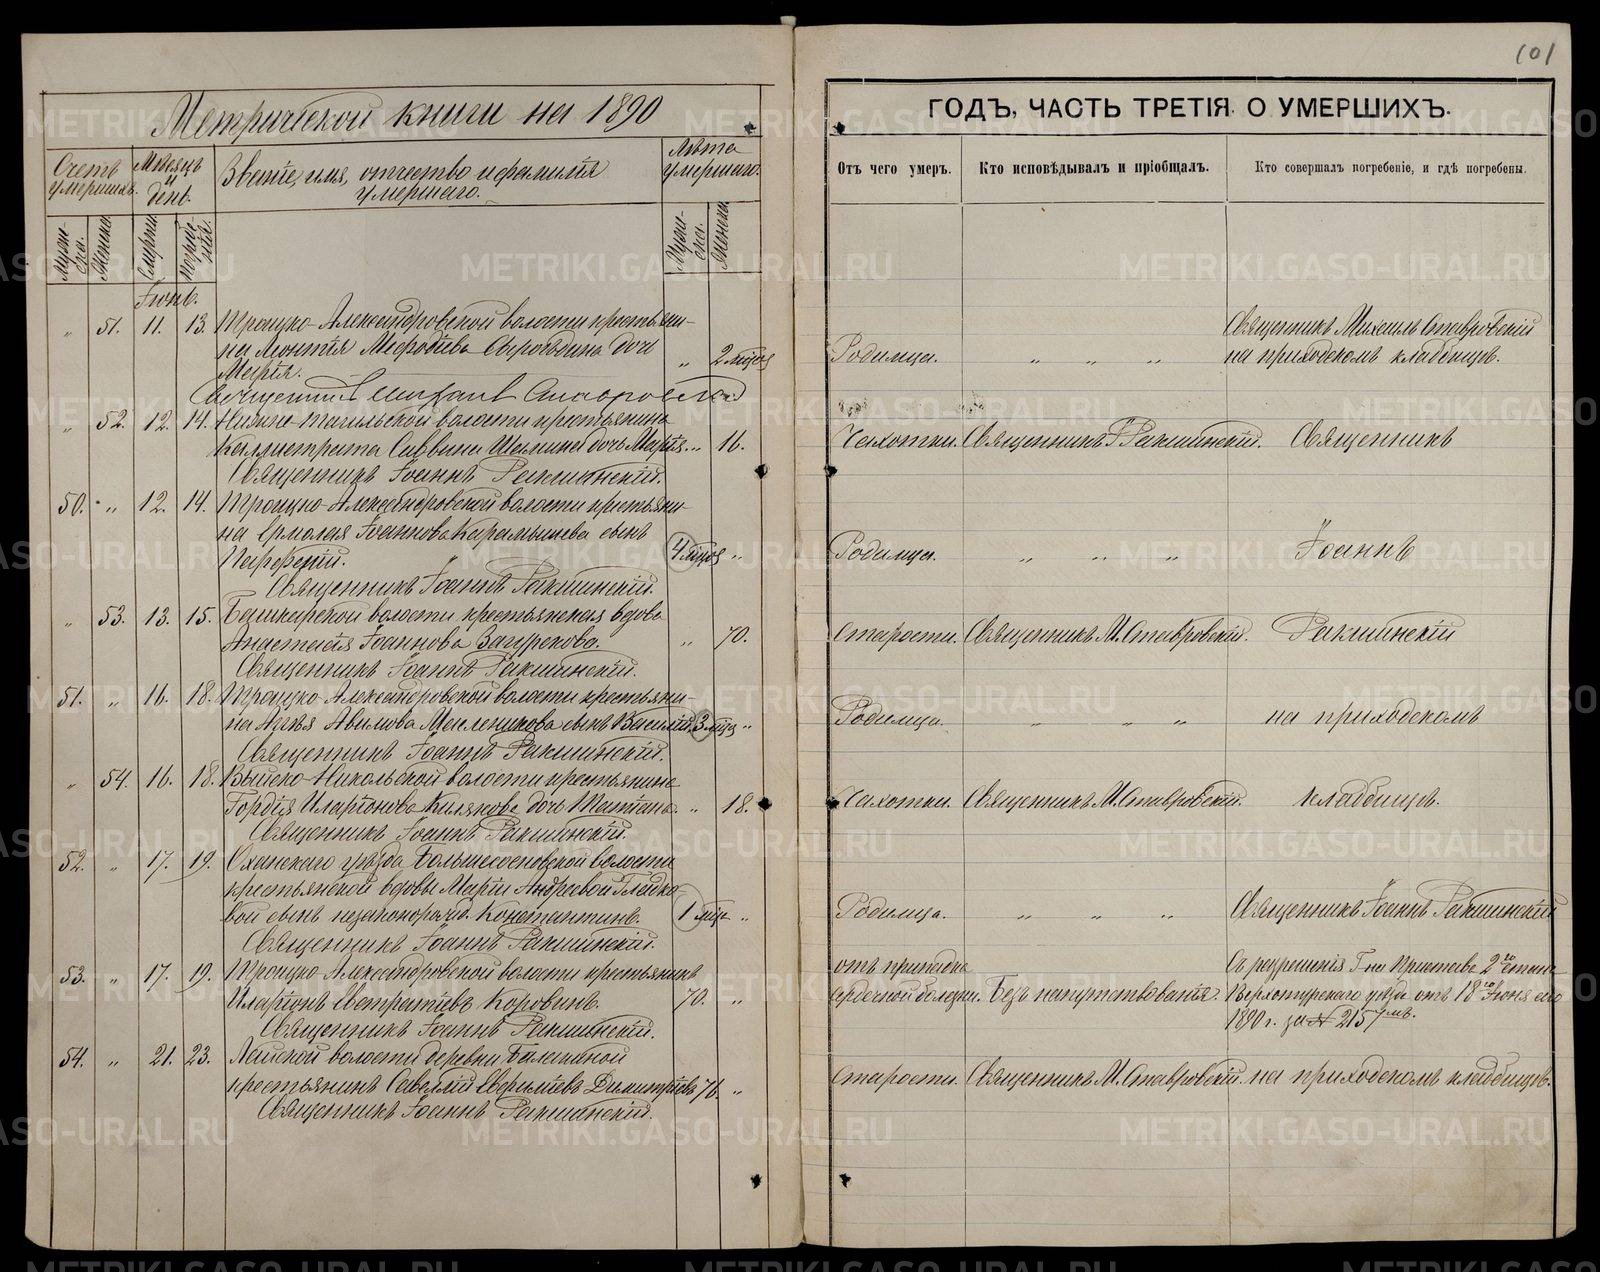 101
Метрической книги на 1890
ГОДЪ, ЧАСТЬ ТРЕТІЯ О УМЕРШИХЪ.
Счетъ умершихъ.
Мѣсяцъ и день.
Званіе, имя, отчество и фамилія умершаго.
Лѣта умершаго.
Отъ чего умеръ.
Кто исповѣдывалъ и пріобщалъ.
Кто совершалъ погребеніе, и гдѣ погребены.
Муже-ска.
Женска
Смерти
погребе-нія.
Муже-ска.
Женска
Іюнь.
„ 51. 11. 13. Троицко-Александровской волости крестьяни-
на Леонтія Меѳодіева Сыроѣдина дочь „ 2 мѣсяц.
Марія.
Родимца. „ „ „
Священникъ Михаилъ Ставровскій
на приходскомъ кладбищѣ.
Священникъ Михаилъ Ставровскій
„ 52. 12. 14. Нижне-тагильской волости крестьянина
Каллистрата Саввина Шелпина дочь Марія. „ 16.
Чахотки. Священникъ І Ракшинскій. Священникъ
Священникъ Іоаннъ Ракшинскій.
50. „ 12. 14. Троицко-Александровской волости крестьяни-
на Ермолая Іоаннова Карамышева сынъ
Парѳеній. 4 мѣсяц „
Родимца. „ „ „ Іоаннъ
Священникъ Іоаннъ Ракшинскій.
„ 53. 13. 15. Башкарской волости крестьянская вдова
Анастасія Іоаннова Загурскова. „ 70.
Старости. Священникъ М. Ставровскій. Ракшинскій
Священникъ Іоаннъ Ракшинскій.
51. „ 16. 18. Троицко-Александровской волости крестьяни-
на Авимова Масленикова сынъ Василій. 3 мѣсяц „
Родимца. „ „ „ на приходскомъ
Священникъ Іоаннъ Ракшинскій.
„ 54. 16. 18. Выйско-Никольской волости крестьянина
Гордія Иларіонова дочь Татіана. „ 18.
Чахотки. Священникъ М. Ставровскій. кладбищѣ.
Священникъ Іоаннъ Ракшинскій.
52. „ 17. 19. Оханскаго уѣзда Большесосновской волости
крестьянской вдовы Маріи Андреевой Гладко-
вой сынъ незаконорожд. Константинъ. 1 мѣсц „
Родимца. „ „ „ Священникъ Іоаннъ Ракшинскій
Священникъ Іоаннъ Ракшинскій.
53. „ 17. 19. Троицко-Александровской волости крестьянинъ
Иларіонъ Евстратіевъ Коровинъ. 70. „
отъ припадка
сердечной болезни. Безъ напутствованія.
Съ разрешенія Г-на Пристава 2го стана
Верхотурскаго уѣзда отъ 18го Іюня сего
1890 г. за № 215
Священникъ Іоаннъ Ракшинскій.
54. „ 21. 23. Лайской волости деревни Балакиной
крестьянинъ Савеллій Димитріевъ 76. „
Старости. Священникъ М. Ставровскій. на приходскомъ кладбищѣ.
Священникъ Іоаннъ Ракшинскій.
METRIKI.GASO-URAL.RU